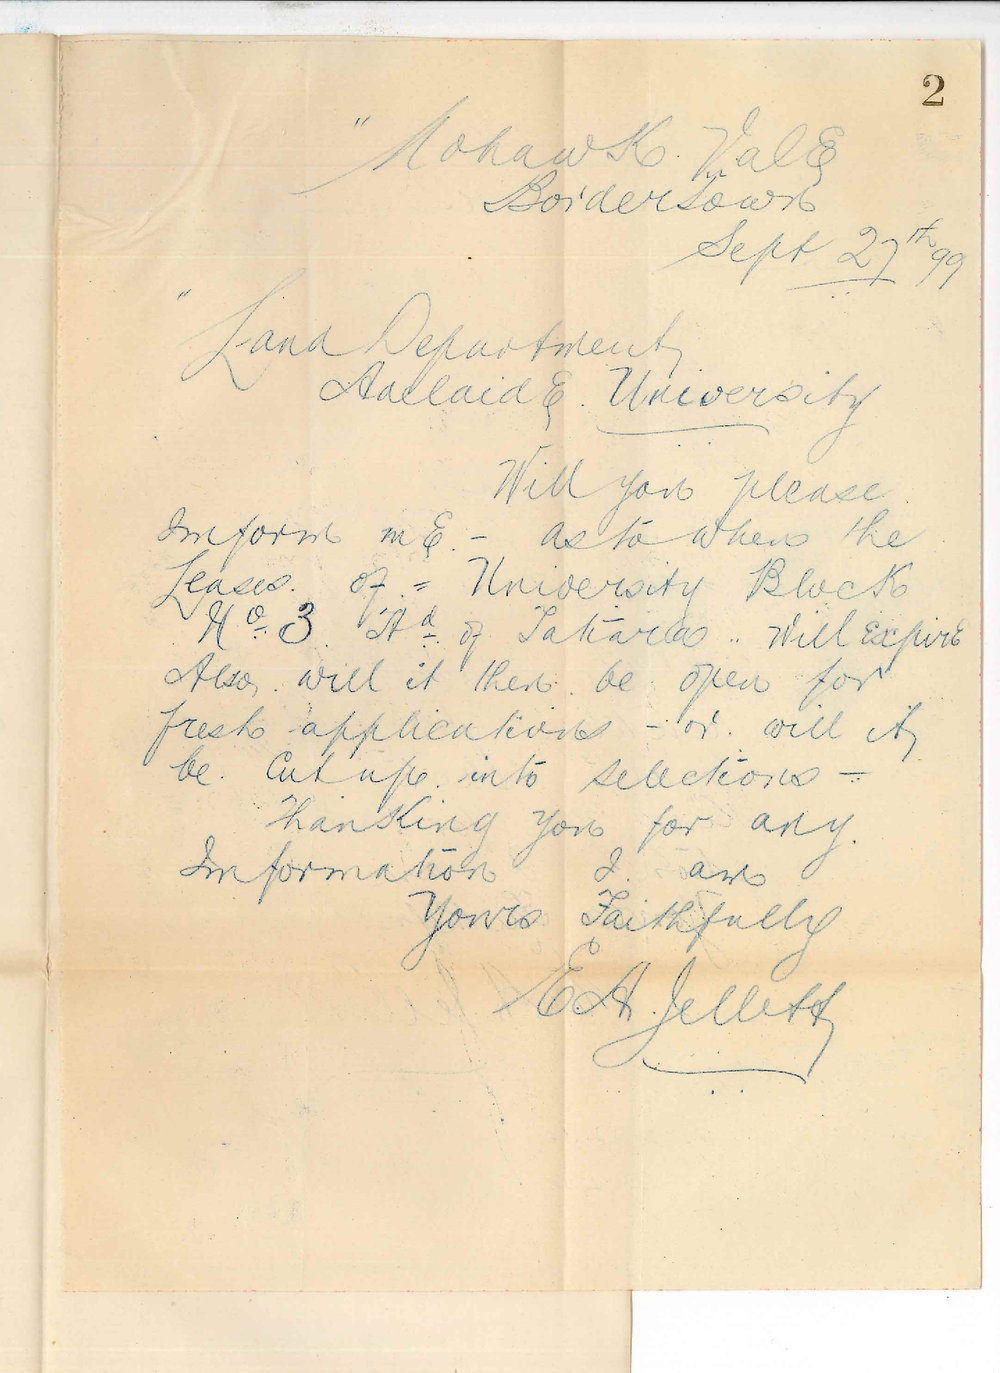 2
"Mohawk Vale
Bordertown
Sept 27th 99
"Land Department
Adelaide University
Will you please
Inform me - as to when the
Leases of = University Block
No 3 Hd of Tatiara .. Will Expire
Also will it then be open for
fresh applications - or will it
be Cut up into selections -
Thanking you for any
Information I am
Yours Faithfully
E. A. Jellett